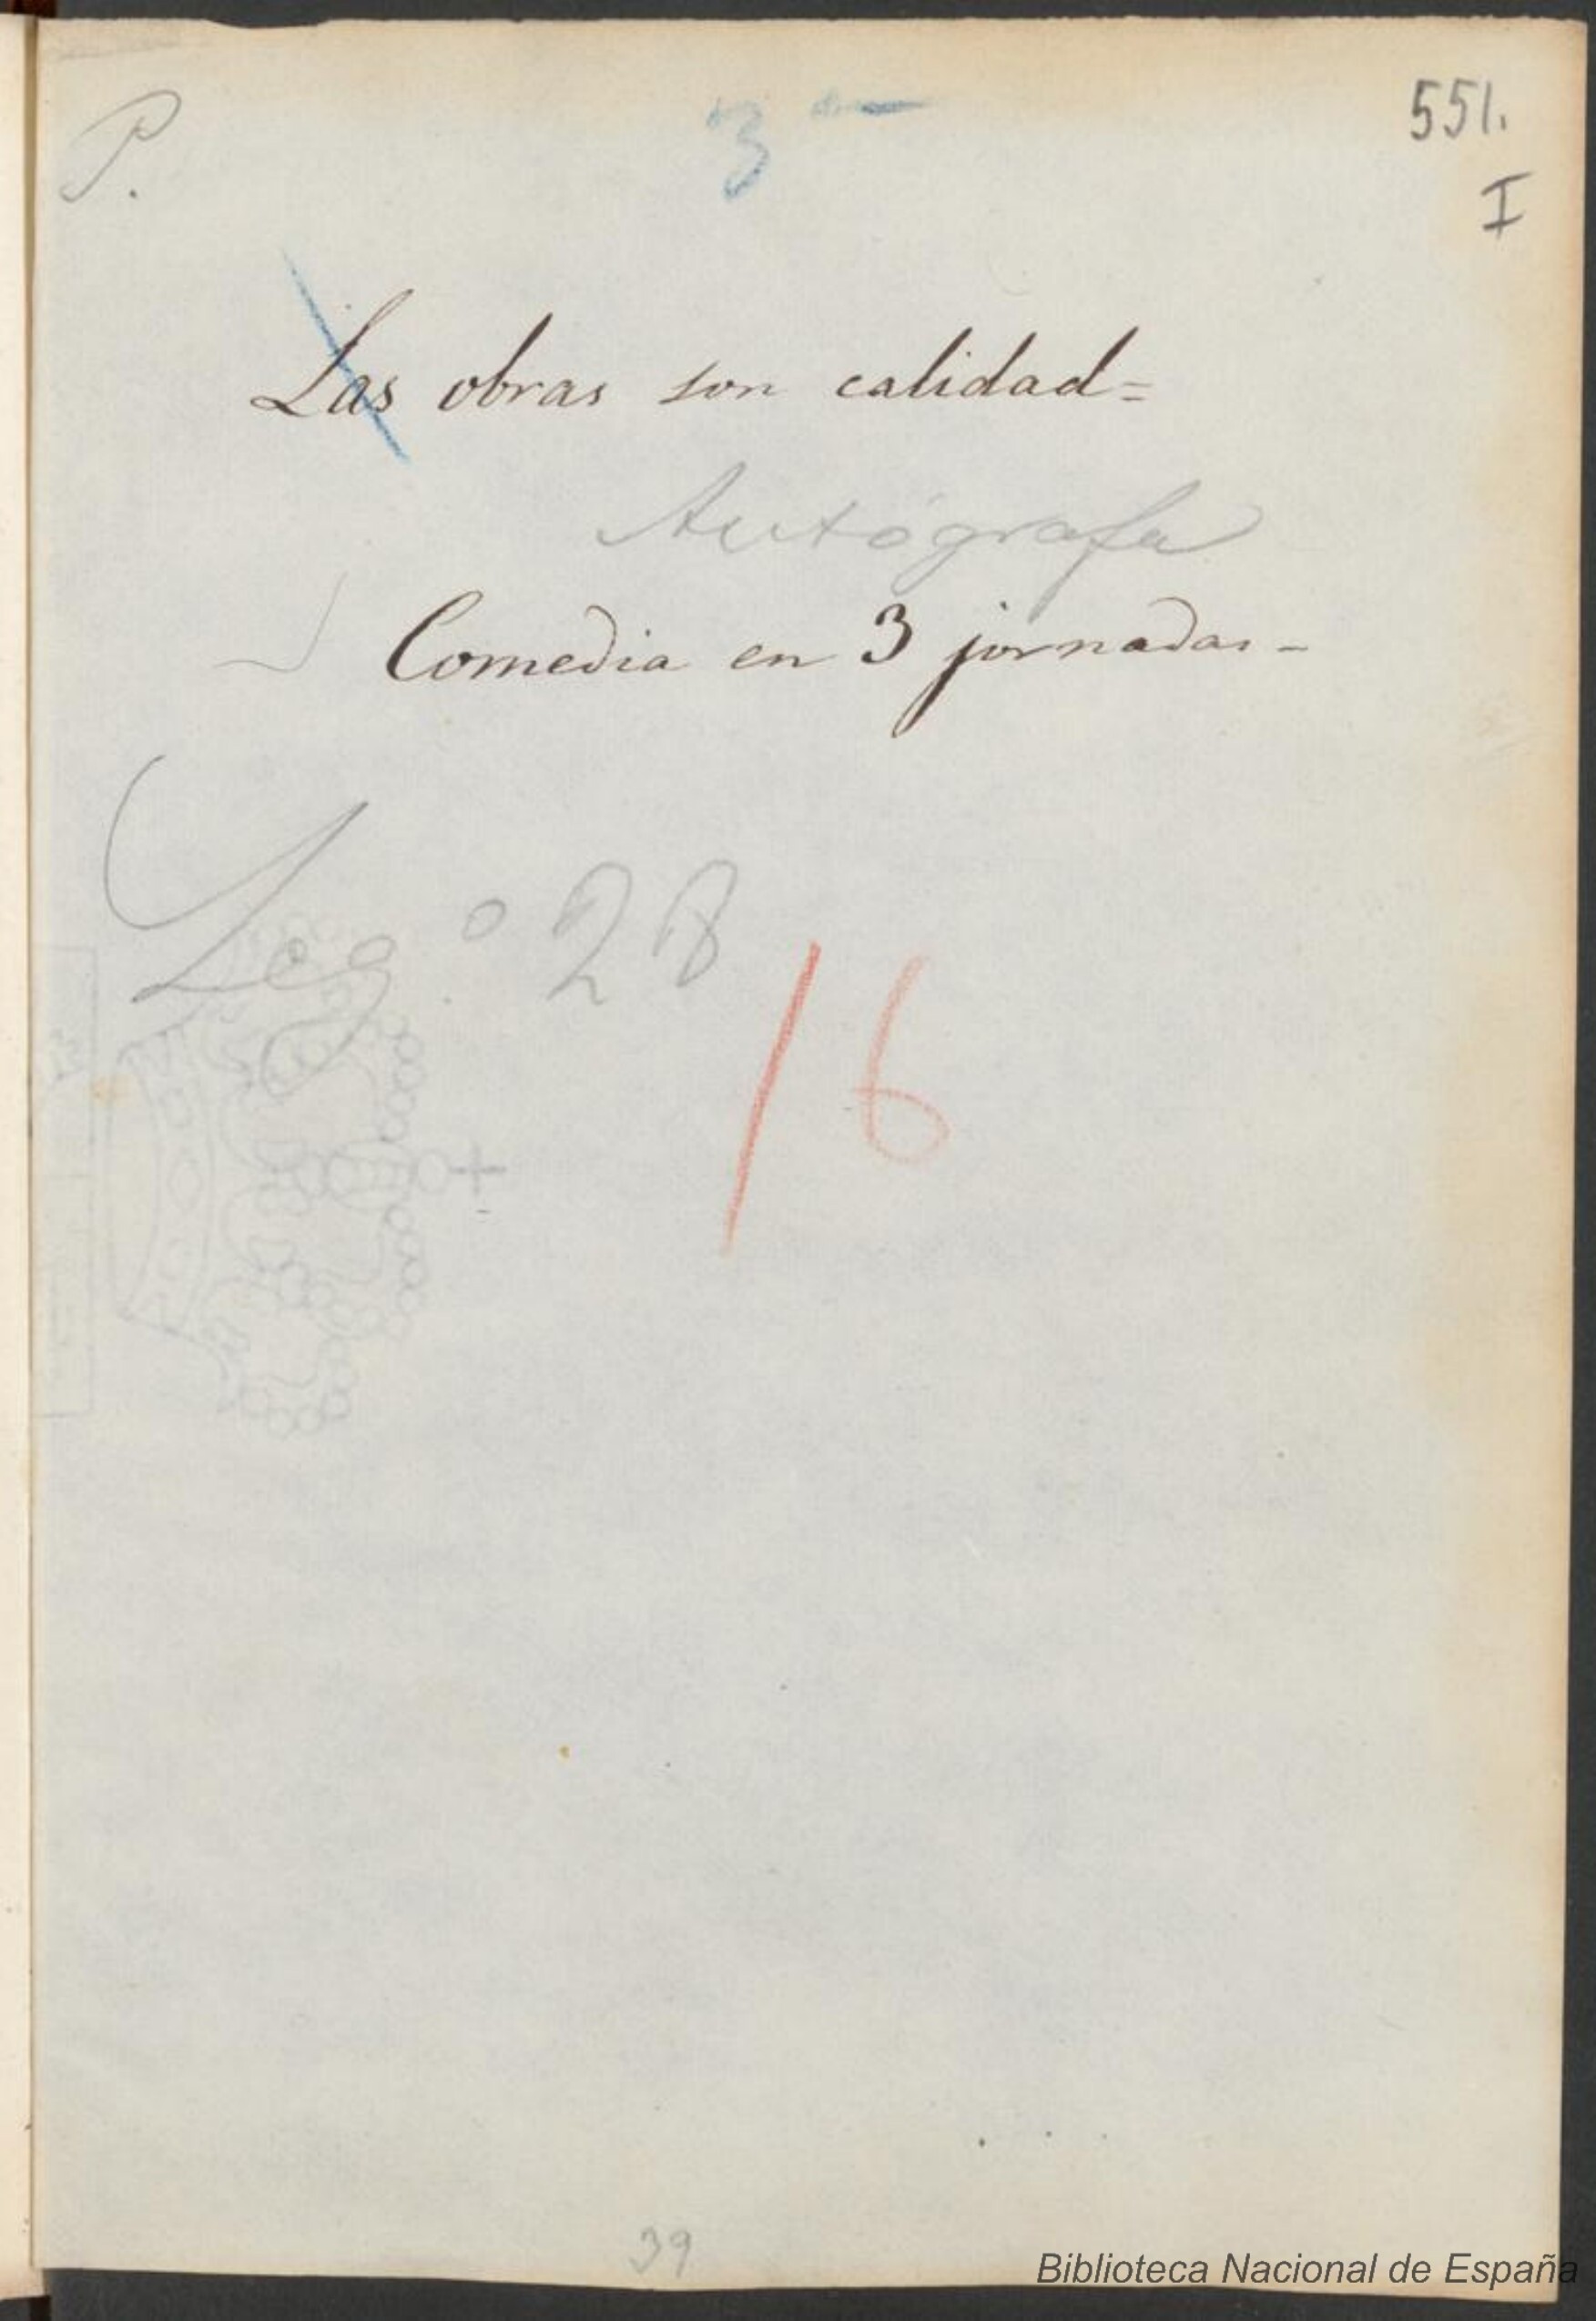 P.
3 -
551.
I
Las obras son calidad=
Autógrafa
Comedia en 3 jornadas-
Leg.º 28
16
39
Biblioteca Nacional de España